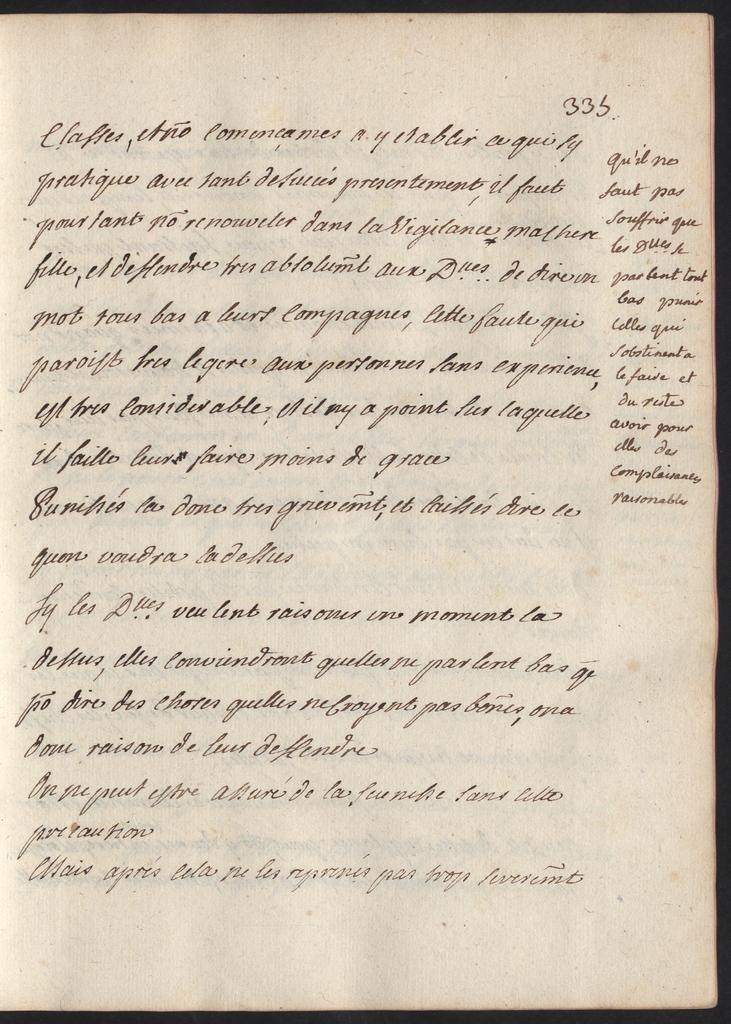 335.
Classes, et no͞ comencames a y establir ce qui sy
pratique avec tant de succés presentement, il faut
pourtant no͞ renouveler dans la Vigilance ma chere
fille, et deffendre tres absolum͞t aux D.ues de dire un
mot tous bas a leurs Compagnes, Cette faute qui
paroist tres legere aux personnes sans experience,
est tres Considerable, et il ny a point sur laquelle
il faille leur faire moins de grace
Punissés la donc tres grievem͞t, et laissés dire ce
quon voudra la dessus
Sy les D.ues veulent raisoner un moment la
dessus, elles Conviendront quelles ne parlent bas q͞e
po͞ dire des choses quelles ne Croyent pas bones, on a
donc raison de leur deffendre
On ne peut estre assuré de la Jeunesse sans cette
precaution
Mais aprés Cela ne les reprenés pas trop severem͞t
qu'il ne
faut pas
souffrir que
les D.ues se
parlent tout
bas punir
Celles qui
s'obstinent a
le faire et
du reste
avoir pour
elles des
Complaisances
raisonables